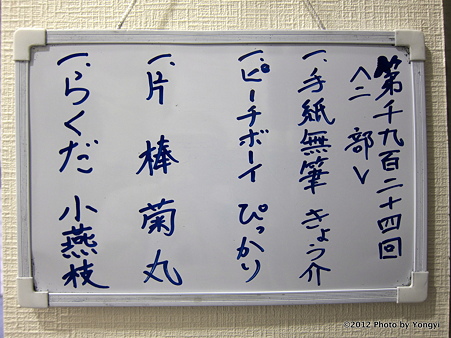 第千九百二十四回
＜二部＞
一、手紙無筆 きょう介
一、ピーチボーイ ぴっかり
一、片棒 菊丸
一、らくだ 小燕枝
©2012 Photo by Yongyi